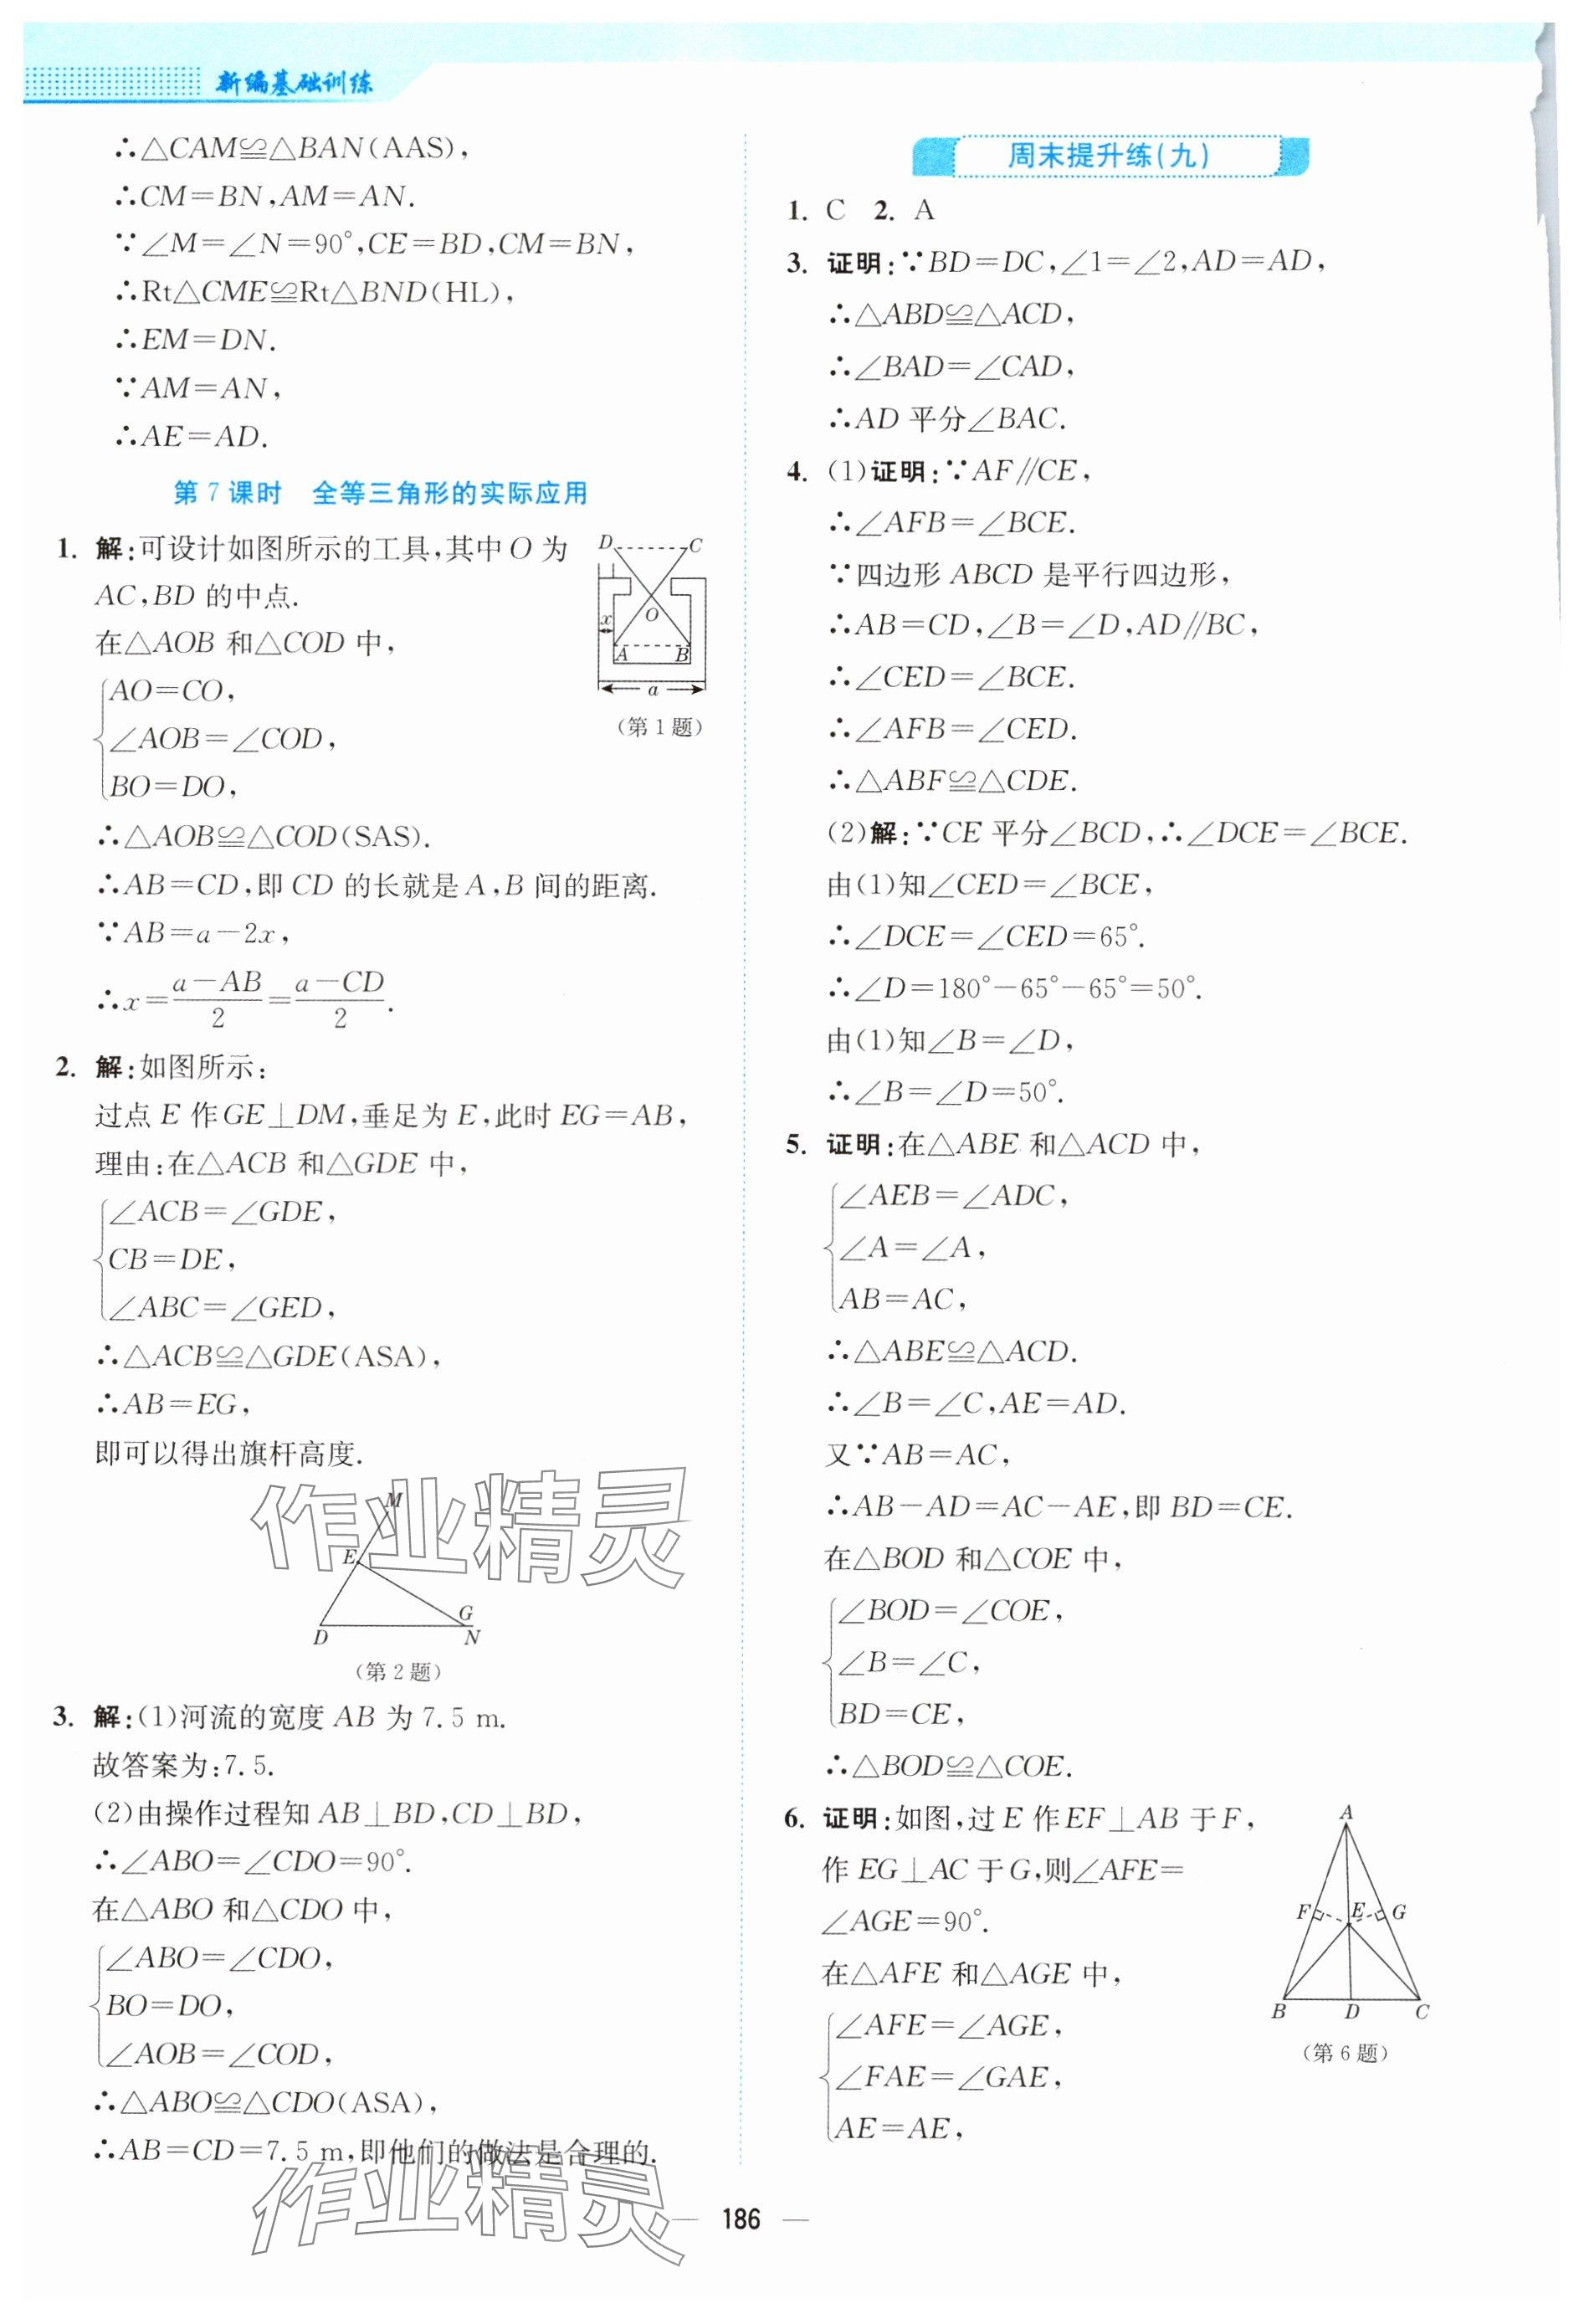 新编基础训练
∴△CAM≌△BAN(AAS),
∴CM=BN,AM=AN.
∵∠M=∠N=90°,CE=BD,CM=BN,
∴Rt△CME≌Rt△BND(HL),
∴EM=DN.
∵AM=AN,
∴AE=AD.
第7课时 全等三角形的实际应用
1. 解:可设计如图所示的工具,其中O为
AC,BD的中点.
在△AOB和△COD中,
AO=CO,
∠AOB=∠COD,
BO=DO,
D C
O
x
A B
a
(第1题)
∴△AOB≌△COD(SAS).
∴AB=CD,即CD的长就是A,B间的距离.
∵AB=a-2x,
∴x=\frac{a-AB}{2}=\frac{a-CD}{2}.
2. 解:如图所示:
过点E作GE⊥DM,垂足为E,此时EG=AB,
理由:在△ACB和△GDE中,
∠ACB=∠GDE,
CB=DE,
∠ABC=∠GED,
∴△ACB≌△GDE(ASA),
∴AB=EG,
即可以得出旗杆高度.
作业精灵
M
E
G
D N
(第2题)
3. 解:(1)河流的宽度AB为7.5 m.
故答案为:7.5.
(2)由操作过程知AB⊥BD,CD⊥BD,
∴∠ABO=∠CDO=90°.
在△ABO和△CDO中,
∠ABO=∠CDO,
BO=DO,
∠AOB=∠COD,
∴△ABO≌△CDO(ASA),
∴AB=CD=7.5 m,即他们的做法是合理的.
作业精灵
周末提升练(九)
1. C 2. A
3. 证明:∵BD=DC,∠1=∠2,AD=AD,
∴△ABD≌△ACD,
∴∠BAD=∠CAD,
∴AD平分∠BAC.
4. (1)证明:∵AF∥CE,
∴∠AFB=∠BCE.
∵四边形ABCD是平行四边形,
∴AB=CD,∠B=∠D,AD∥BC,
∴∠CED=∠BCE.
∴∠AFB=∠CED.
∴△ABF≌△CDE.
(2)解:∵CE平分∠BCD,∴∠DCE=∠BCE.
由(1)知∠CED=∠BCE,
∴∠DCE=∠CED=65°.
∴∠D=180°-65°-65°=50°.
由(1)知∠B=∠D,
∴∠B=∠D=50°.
5. 证明:在△ABE和△ACD中,
∠AEB=∠ADC,
∠A=∠A,
AB=AC,
∴△ABE≌△ACD.
∴∠B=∠C,AE=AD.
又∵AB=AC,
∴AB-AD=AC-AE,即BD=CE.
在△BOD和△COE中,
∠BOD=∠COE,
∠B=∠C,
BD=CE,
∴△BOD≌△COE.
6. 证明:如图,过E作EF⊥AB于F,
作EG⊥AC于G,则∠AFE=
∠AGE=90°.
在△AFE和△AGE中,
∠AFE=∠AGE,
∠FAE=∠GAE,
AE=AE,
A
F E G
B D C
(第6题)
186